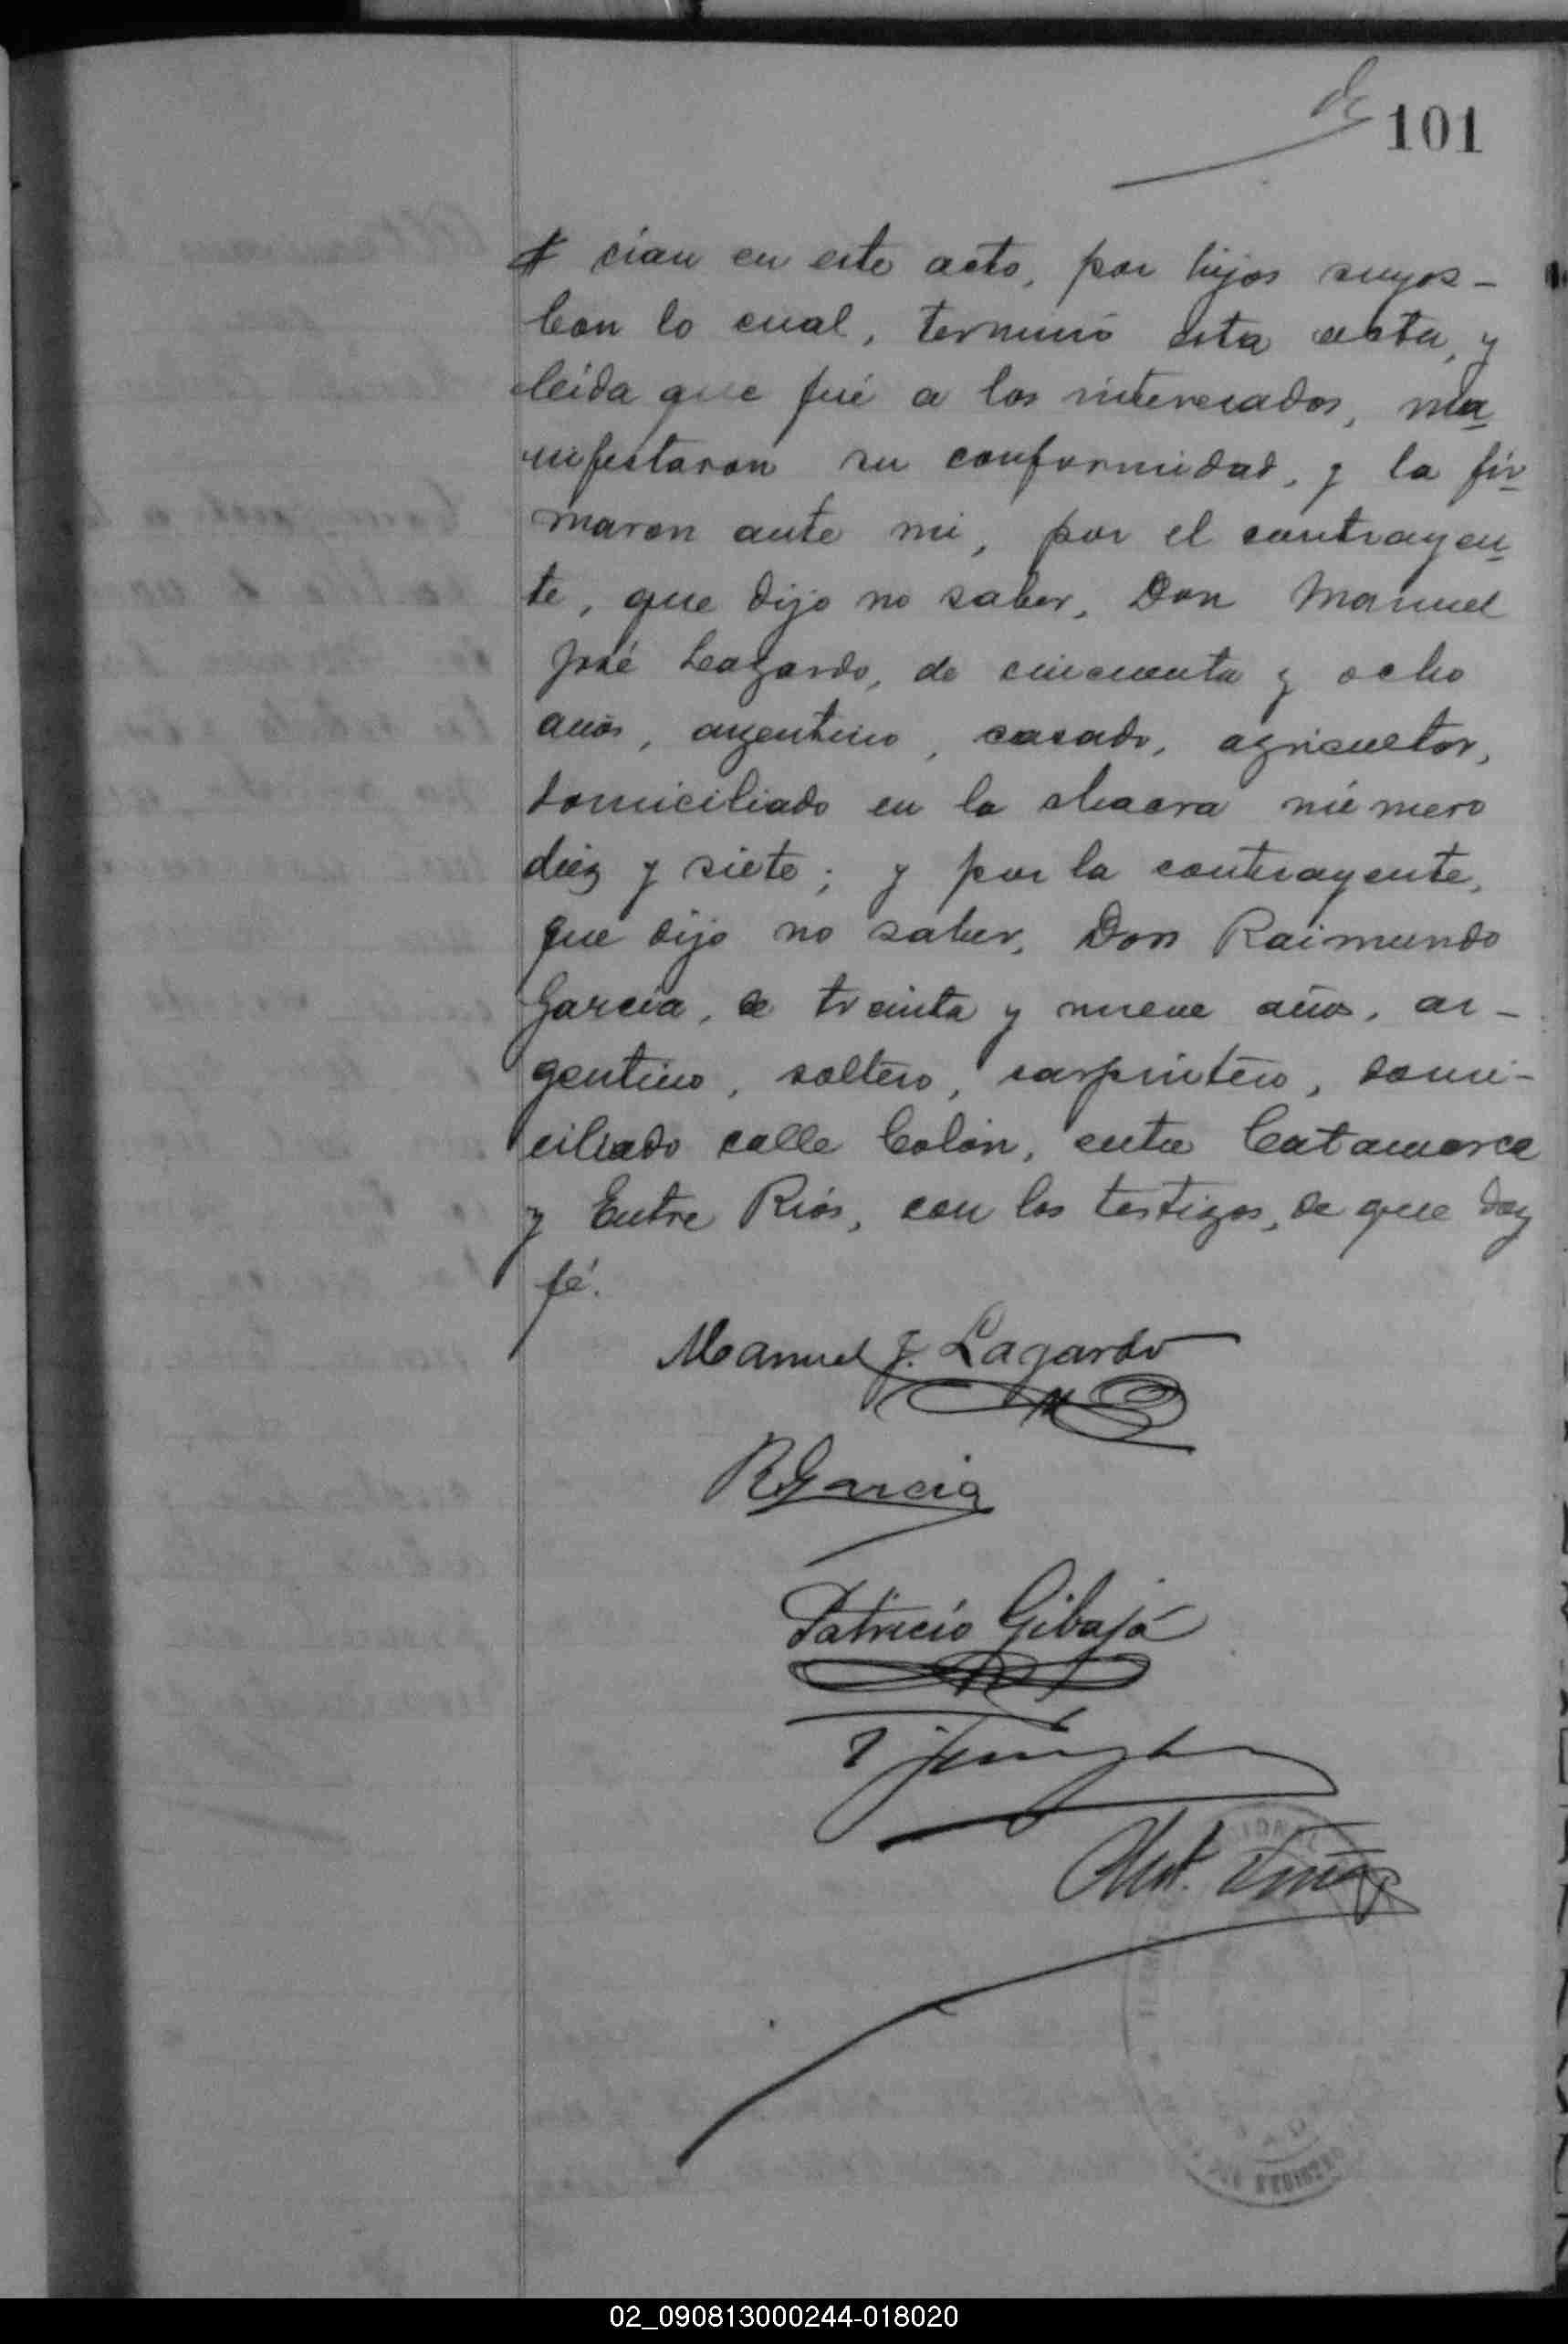 101
cian en este acto, por hijos suyos -
Con lo cual, terminó esta acta, y
leída que fué a los interesados, ma
nifestaron su conformidad, y la fir
maron ante mi, por el contrayen
te, que dijo no saber, Don Manuel
José Lagardo, de cincuenta y ocho
años, argentino, casado, agricultor,
domiciliado en la chacra número
diez y siete; y por la contrayente,
que dijo no saber, Don Raimundo
García, de treinta y nueve años, ar -
gentino, soltero, carpintero, domi -
ciliado calle Colón, entre Catamarca
y Entre Ríos, con los testigos, de que doy
fé.
Manuel J. Lagardo
R Garcia
Patricio Gibajá
REGISTRO
02_090813000244-018020